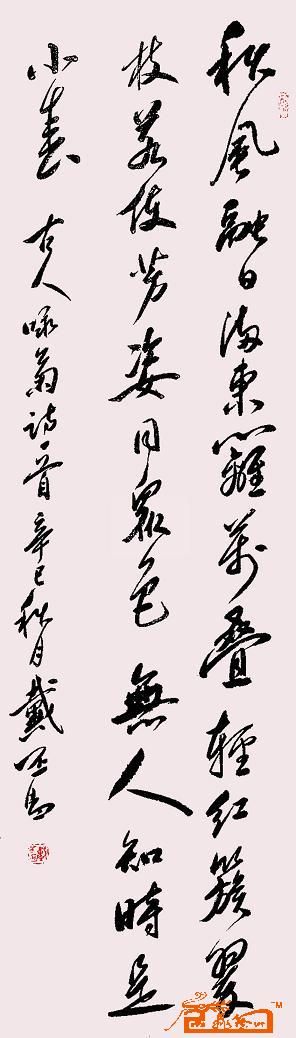 秋風融日满東籬萬叠輕红簇翠
枝若使芳姿同眾色無人知時是
小春 古人咏菊诗一首 辛巳秋月戴